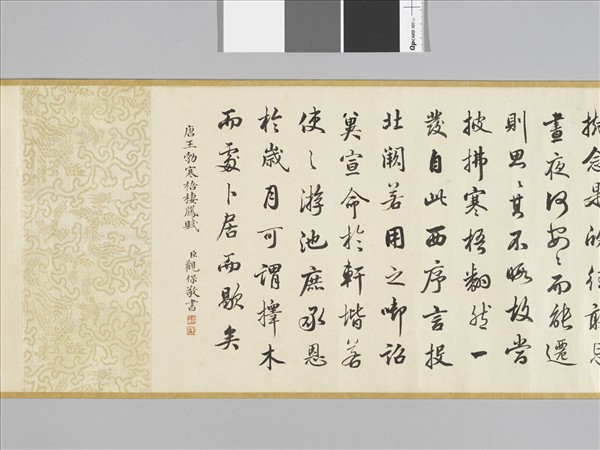 念是欲往敢忘
晝夜何安〻而能遷
則思〻其不暇故當
披拂寒梧翻然一
發自此西序言投
北闕若用之銜詔
冀宣命於軒堦若
使之游池庶承恩
於歲月可謂擇木
而處卜居而歇矣
唐王勃寒梧棲鳳賦
臣觀保敬書